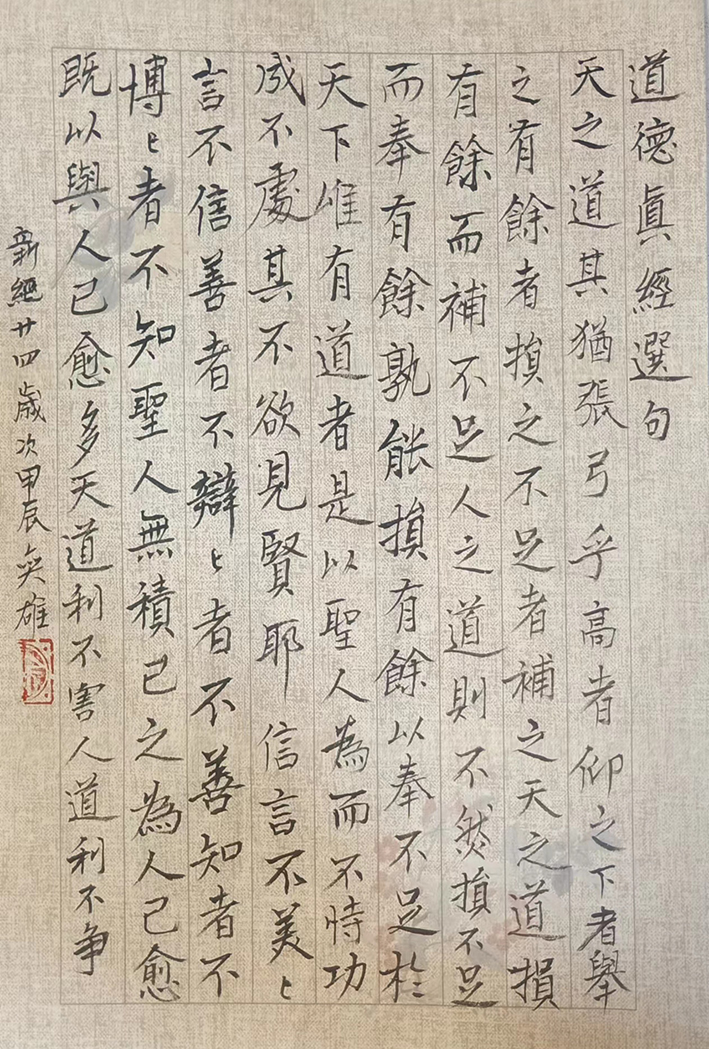 道德眞經選句
天之道其猶張弓乎高者仰之下者舉
之有餘者損之不足者補之天之道損
有餘而補不足人之道則不然損不足
而奉有餘孰能損有餘以奉不足於
天下唯有道者是以聖人為而不恃功
成不處其不欲見賢耶信言不美〻
言不信善者不辯〻者不善知者不
博〻者不知聖人無積已之為人已愈
既以與人已愈多天道利不害人道利不争
新廿四歲次甲辰奕雄